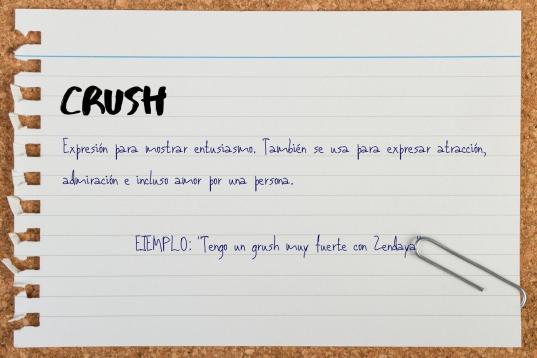 CRUSH
Expresión para mostrar entusiasmo. También se usa para expresar atracción,
admiración e incluso amor por una persona.
EJEMPLO: "Tengo un grush muy fuerte con Zendaya"